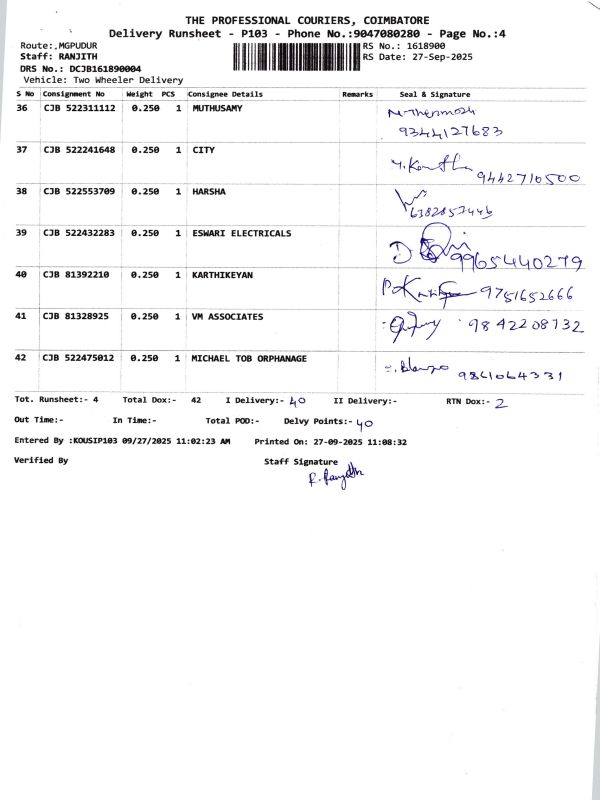 THE PROFESSIONAL COURIERS, COIMBATORE
Delivery Runsheet - P103 - Phone No.:9047080280 - Page No.:4
Route:,MGPUDUR
RS No.: 1618900
Staff: RANJITH
RS Date: 27-Sep-2025
DRS No.: DCJB161890004
Vehicle: Two Wheeler Delivery
S No Consignment No Weight PCS Consignee Details Remarks Seal & Signature
36 CJB 522311112 0.250 1 MUTHUSAMY
9344127683
37 CJB 522241648 0.250 1 CITY
9442710500
38 CJB 522553709 0.250 1 HARSHA
39 CJB 522432283 0.250 1 ESWARI ELECTRICALS
9965440279
40 CJB 81392210 0.250 1 KARTHIKEYAN
9751652666
41 CJB 81328925 0.250 1 VM ASSOCIATES
9842208132
42 CJB 522475012 0.250 1 MICHAEL TOB ORPHANAGE
9841064331
Tot. Runsheet:- 4 Total Dox:- 42 I Delivery:- 40 II Delivery:- RTN Dox:- 2
Out Time:- In Time:- Total POD:- Delvy Points:- 40
Entered By :KOUSIP103 09/27/2025 11:02:23 AM Printed On: 27-09-2025 11:08:32
Verified By Staff Signature